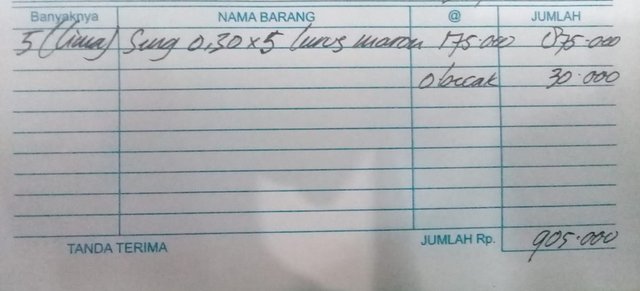 Banyaknya NAMA BARANG @ JUMLAH
5 (lima) Seng 0,30 x 5 lurus maron 175.000 875.000
O becak 30.000
TANDA TERIMA JUMLAH Rp. 905.000